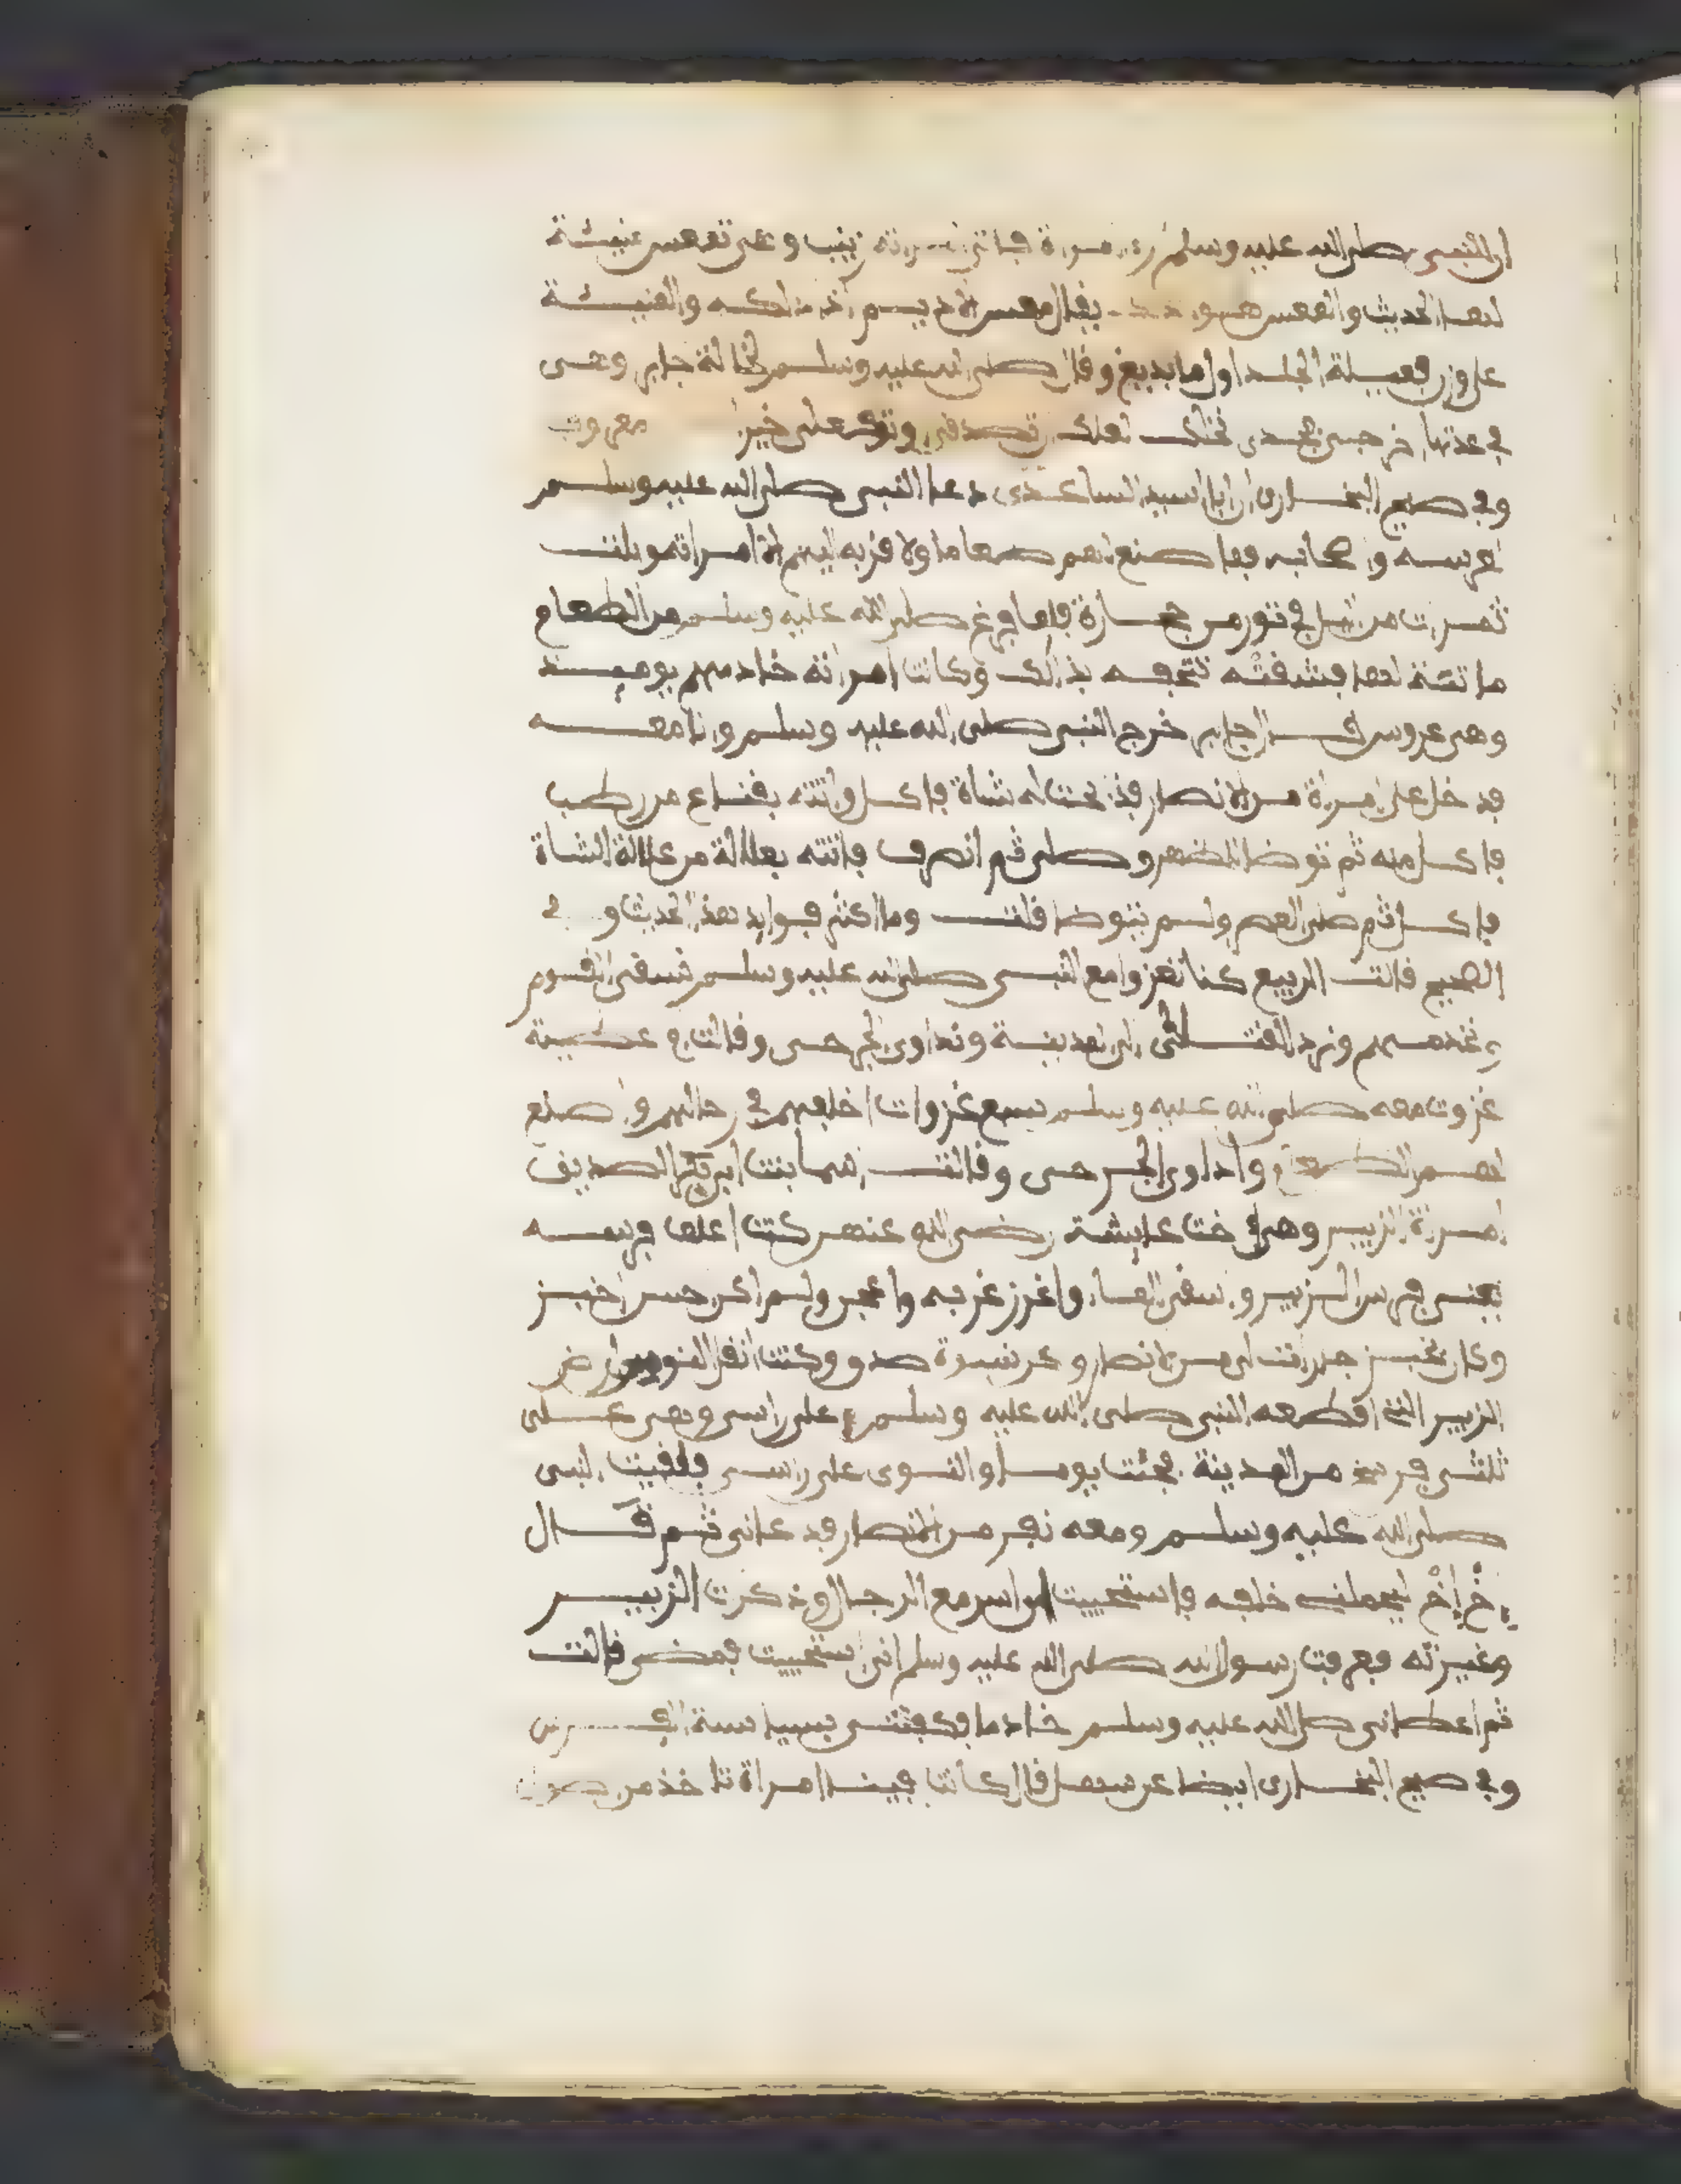 ان النبي صلى الله عليه وسلم رءا امراة فاتى امراته زينب وهي تمعس منيئة
لها الحديث والمعس هو يقال معس الاديم اذا دلكه والمنيئة
على وزن فعيلة الجلد اول ما يدبغ وقال صلى الله عليه وسلم لخالة جابر وهي
في عدتها اخرجي فجدي نخلك لعلك ان تصدقي او تفعلي خيرا معروف
وفي صحيح البخاري ان ابا اسيد الساعدي دعا النبي صلى الله عليه وسلم
لعرسه واصحابه فما صنع لهم طعاما ولا قربه اليهم الا امراته وبلت
تمرات من اليل في تور من حجارة فلما فرغ صلى الله عليه وسلم من الطعام
ماتثته لها فسقته تتحفه بذالك وكانت امراته خادمهم يوميذ
وهي عروس قال جابر خرج النبي صلى الله عليه وسلم وانا معه
فدخل على امراة من الانصار فذبحت له شاة فاكل واتته بقناع من رطب
فاكل منه ثم توضا للظهر وصلى ثم انصرف فاتته بعلالة من علالة الشاة
فاكل ثم صلى العصر ولم يتوضا قلت وما اكثر فوايد هذا الحديث وفي
الصحيح قالت الربيع كنا نغزوا مع النبي صلى الله عليه وسلم فنسقي القوم
ونخدمهم ونرد القتلى الى المدينة ونداوي الجرحى وقالت ام عطية
غزوت معه صلى الله عليه وسلم سبع غزوات اخلفهم في رحالهم واصنع
لهم الطعام واداوي الجرحى وقالت اسما بنت ابي بكر الصديق
امراة الزبير وهي اخت عايشة رضي الله عنهم كنت اعلف فرسه
يعني فرس الزبير واسقي الماء واخرز غربه واعجن ولم اكن احسن اخبز
وكان يخبز جارات لي من الانصار وكن نسوة صدق وكنت انقل النوى من ارض
الزبير التي اقطعه النبي صلى الله عليه وسلم على راسي وهي على
ثلثي فرسخ من المدينة فجئت يوما والنوى على راسي فلقيت النبي
صلى الله عليه وسلم ومعه نفر من الانصار فدعاني ثم قال
إخ إخ ليحملني خلفه فاستحييت ان اسير مع الرجال وذكرت الزبير
وغيرته فعرف رسول الله صلى الله عليه وسلم اني استحييت فمضى قالت
ثم اعطاني صلى الله عليه وسلم خادما فكفتني سياسة الفرس
وفي صحيح البخاري ايضا عن سهل قال كانت فينا امراة تاخذ من